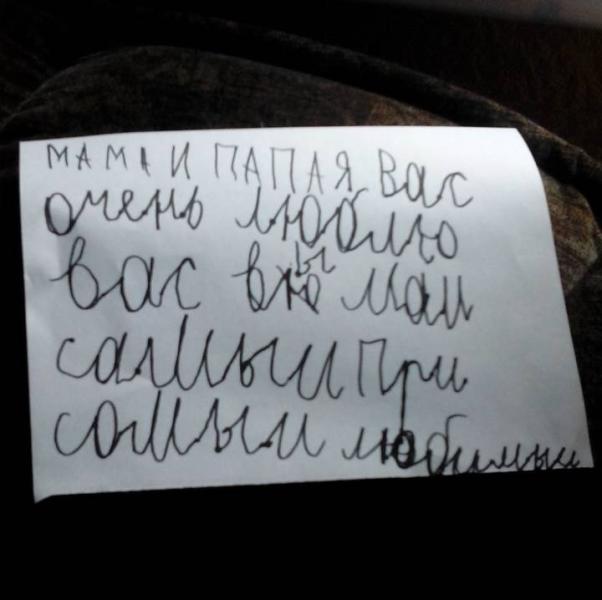 МАМА И ПАПА Я Вас
очень люблю
вас вы маи
самыи При
самыи любимыи